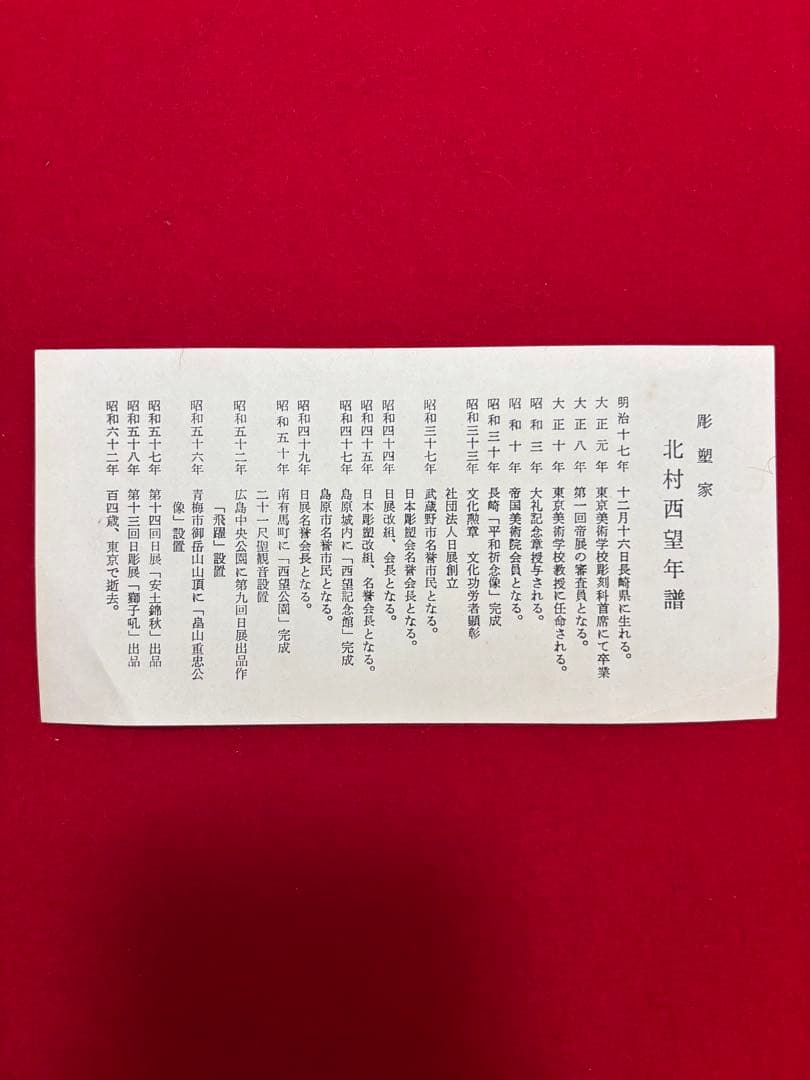 彫塑家
北村西望年譜
明治十七年 十二月十六日長崎県に生れる。
大正元年 東京美術学校彫刻科首席にて卒業
大正八年 第一回帝展の審査員となる。
大正十年 東京美術学校教授に任命される。
昭和三年 大礼記念章授与される。
昭和十年 帝国美術院会員となる。
昭和三十年 長崎「平和祈念像」完成
昭和三十三年 文化勲章 文化功労者顕彰
社団法人日展創立
昭和三十七年 武蔵野市名誉市民となる。
日本彫塑会名誉会長となる。
昭和四十四年 日展改組、会長となる。
昭和四十五年 日本彫塑改組、名誉会長となる。
昭和四十七年 島原城内に「西望記念館」完成
島原市名誉市民となる。
昭和四十九年 日展名誉会長となる。
昭和五十年 南有馬町に「西望公園」完成
二十一尺聖観音設置
昭和五十二年 広島中央公園に第九回日展出品作
「飛躍」設置
昭和五十六年 青梅市御岳山山頂に「畠山重忠公
像」設置
昭和五十七年 第十四回日展「安土錦秋」出品
昭和五十八年 第十三回日彫展「獅子吼」出品
昭和六十二年 百四歳、東京で逝去。